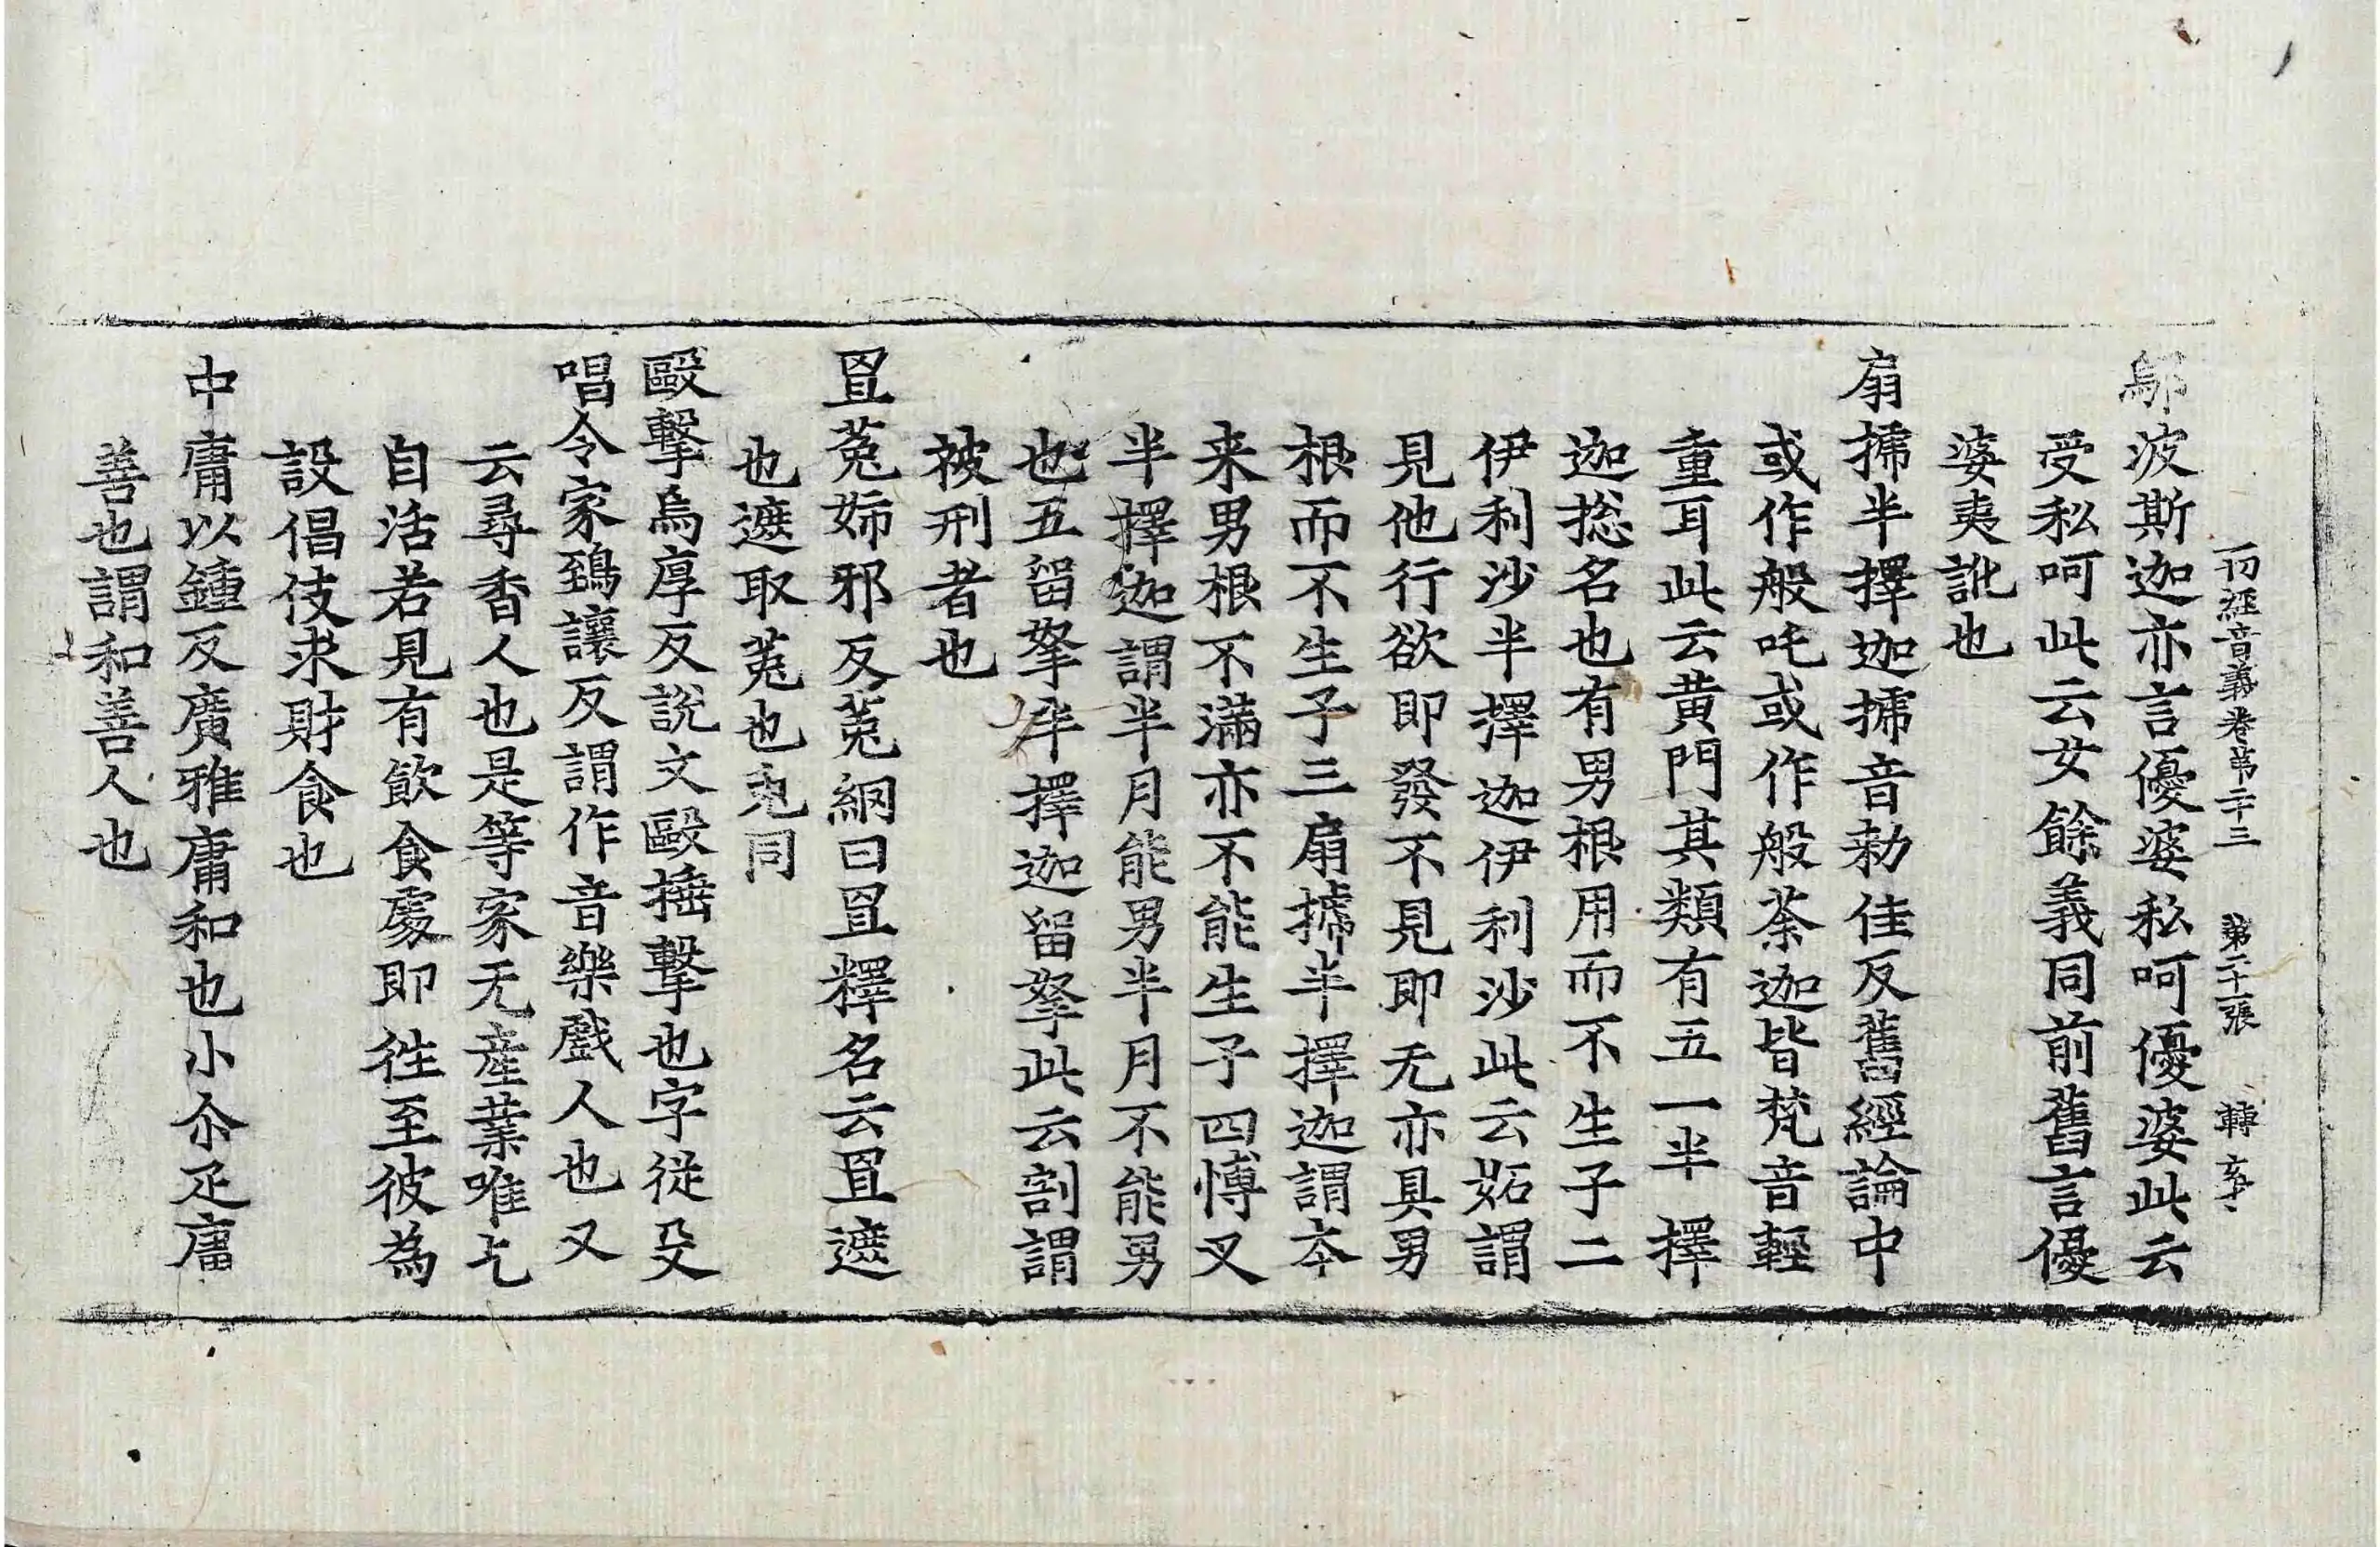 一切經音義卷第二十三　第二十一張　轉亥
鄔波斯迦亦言優婆私呵優婆此云
受私呵此云女餘義同前舊言優
婆夷訛也
扇搋半擇迦搋音勑佳反舊經論中
或作般吒或作般荼迦皆梵音輕
重耳此云黃門其類有五一半擇
迦捴名也有男根用而不生子二
伊利沙半擇迦伊利沙此云妬謂
見他行欲即發不見即无亦具男
根而不生子三扇搋半擇迦謂本
来男根不滿亦不能生子四愽叉
半擇迦謂半月能男半月不能男
也五留拏半擇迦留拏此云割謂
被刑者也
罝菟姉邪反菟網曰罝釋名云罝遮
也遮取菟也兎同
毆擊烏厚反說文毆捶擊也字從殳
唱令家鵄讓反謂作音樂戲人也又
云尋香人也是等家无產業唯乞
自活若見有飲食處即徃至彼為
設倡伎求財食也
中庸以鍾反廣雅庸和也小尒疋庸
善也謂和善人也